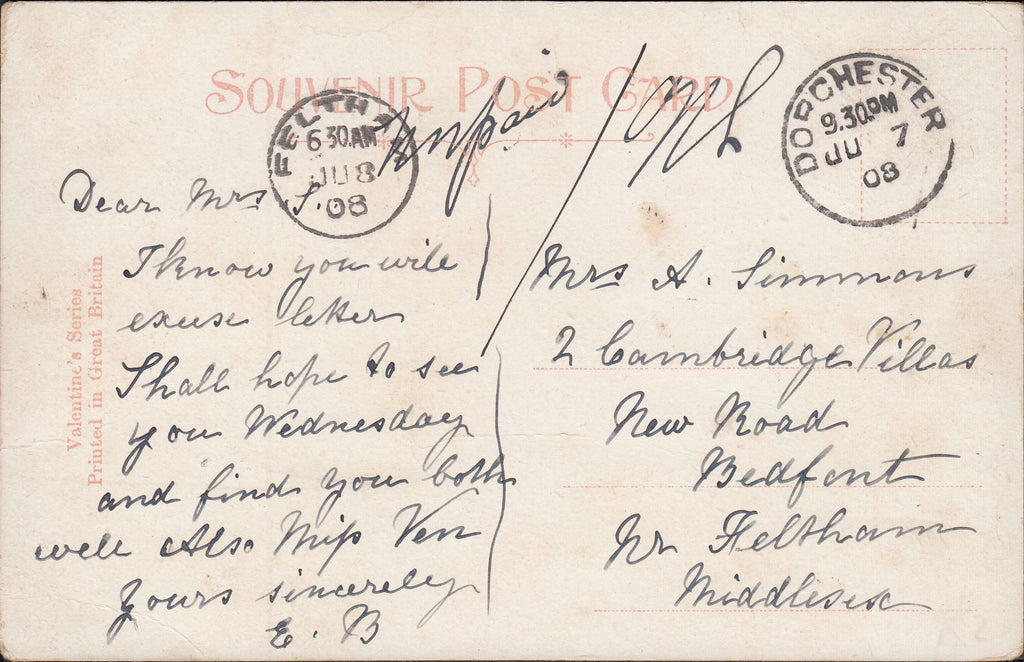 SOUVENIR POST CARD
FELTHA
6 30.AM
JU 8
08
Unpaid /
DORCHESTER
9.30.PM
JU 7
08
Dear Mrs S.
I know you will
excuse letter
Shall hope to see
you Wednesday
and find you both
well Also Miss Ven
Yours sincerely
E. B
Mrs A. Simmons
2 Cambridge Villas
New Road
Bedfont
Nr Feltham
Middlesex
Valentine's Series
Printed in Great Britain